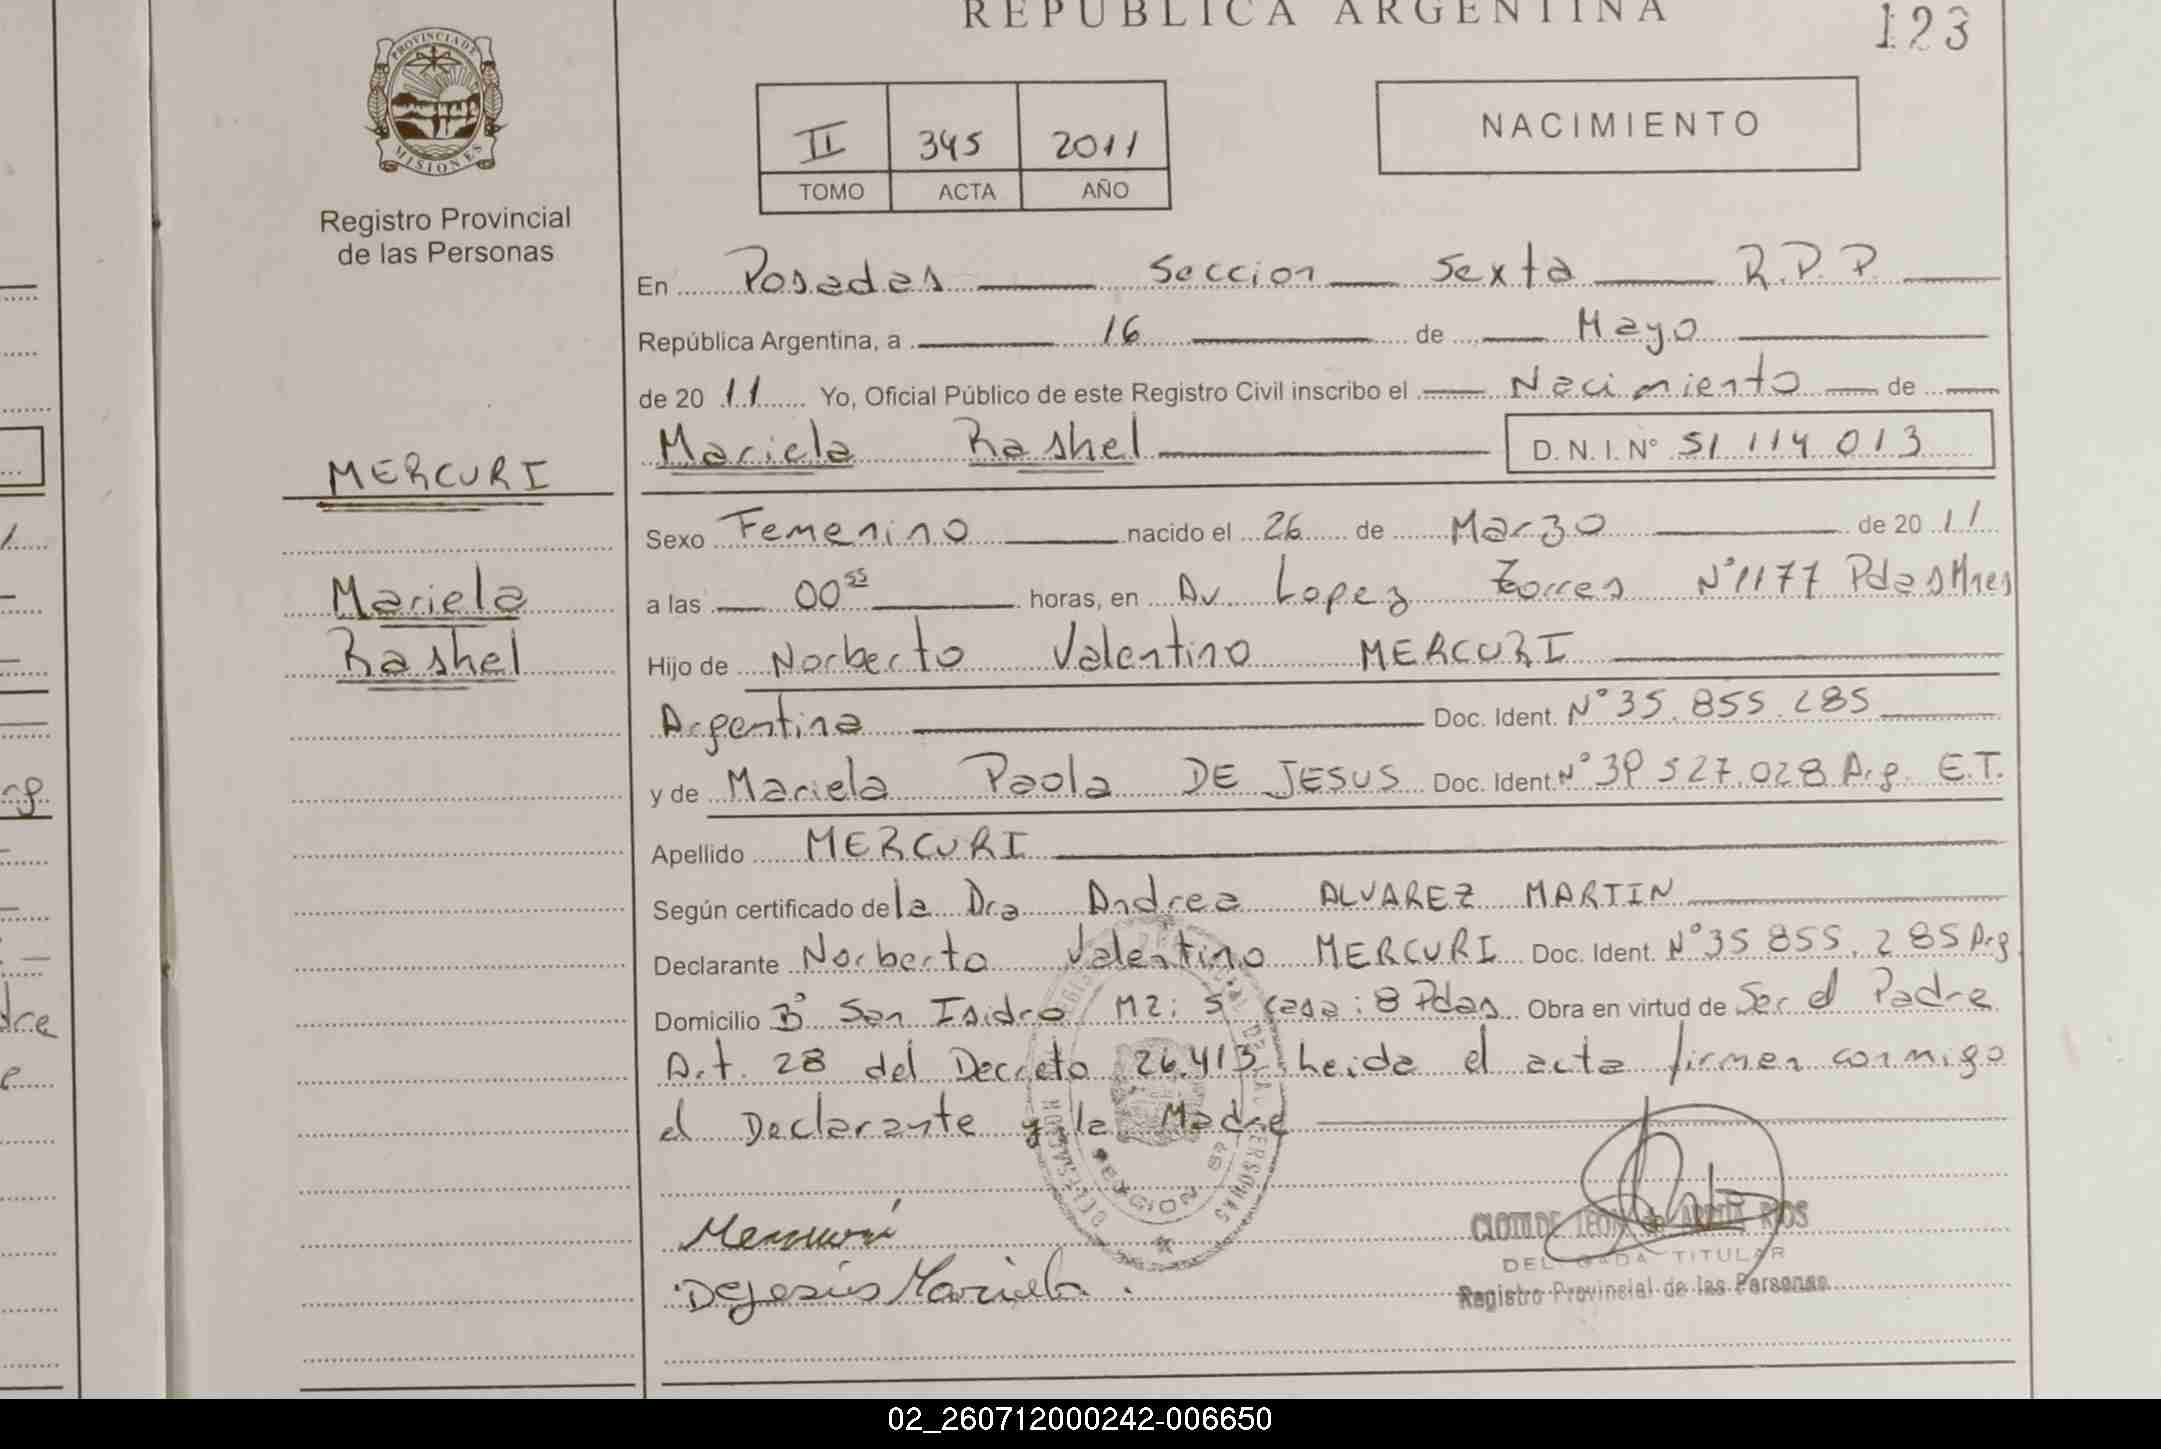 REPUBLICA ARGENTINA
123
PROVINCIA DE
MISIONES
Registro Provincial
de las Personas
II 345 2011
TOMO ACTA AÑO
NACIMIENTO
En Posadas Seccion Sexta R.P.P.
República Argentina, a 16 de Mayo
de 20 11 Yo, Oficial Público de este Registro Civil inscribo el Nacimiento de
Mariela Rashel D.N.I. Nº 51 114 013
MERCURI
Mariela
Rashel
Sexo Femenino nacido el 26 de Marzo de 20 11
a las 00 55 horas, en Av Lopez Torres Nº 1177 Pdas Mnes
Hijo de Norberto Valentino MERCURI
Argentina Doc. Ident. Nº 35.855.285
y de Mariela Paola DE JESUS Doc. Ident. Nº 39 527.028 Arg. E.T.
Apellido MERCURI
Según certificado de la Dra Andrea ALVAREZ MARTIN
Declarante Norberto Valentino MERCURI Doc. Ident. Nº 35 855.285 Arg
Domicilio Bº San Isidro MZ: 5 casa: 8 Pdas Obra en virtud de Ser el Padre
Art. 28 del Decreto 26.413 Leida el acta firman conmigo
el Declarante y la Madre
Mercuri
De Jesús Mariela
DELEGADA TITULAR
Registro Provincial de las Personas
02_260712000242-006650